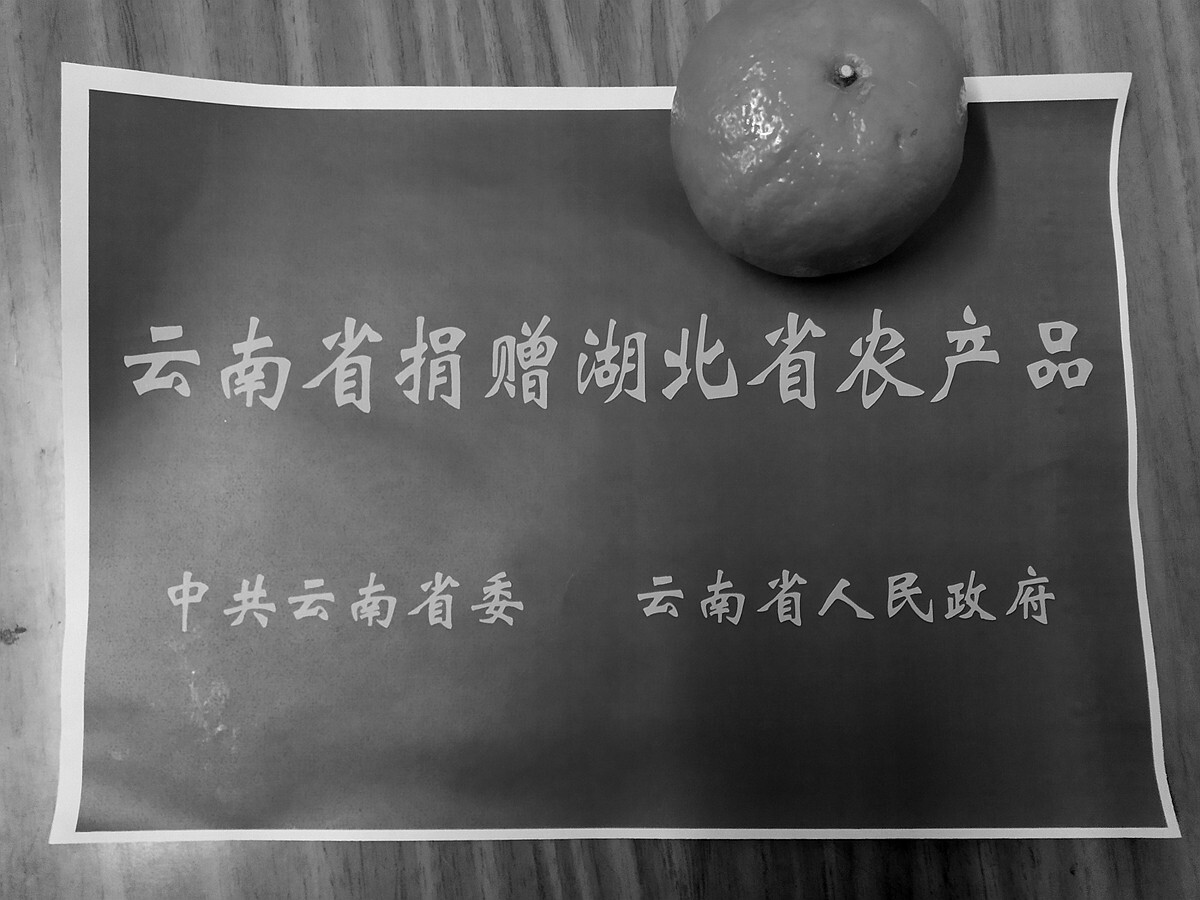 云南省捐赠湖北省农产品
中共云南省委 云南省人民政府